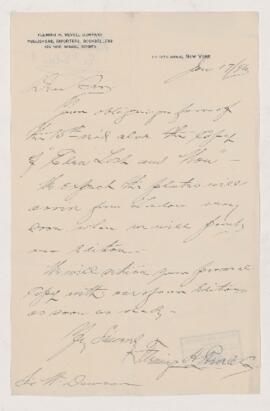 FLEMING H. REVELL COMPANY
PUBLISHERS, IMPORTERS, BOOKSELLERS
158 FIFTH AVENUE, NEW YORK
Jan 17/
Dear Sir
Your obliging favor of
the 15th rec'd also the copy
of "Lost and Won"
We expect the plates will
arrive from London very
soon when we will print
our edition
We will return your personal
copy with one of our editions
as soon as ready
Yrs Sincerely
Fleming H Revell Co